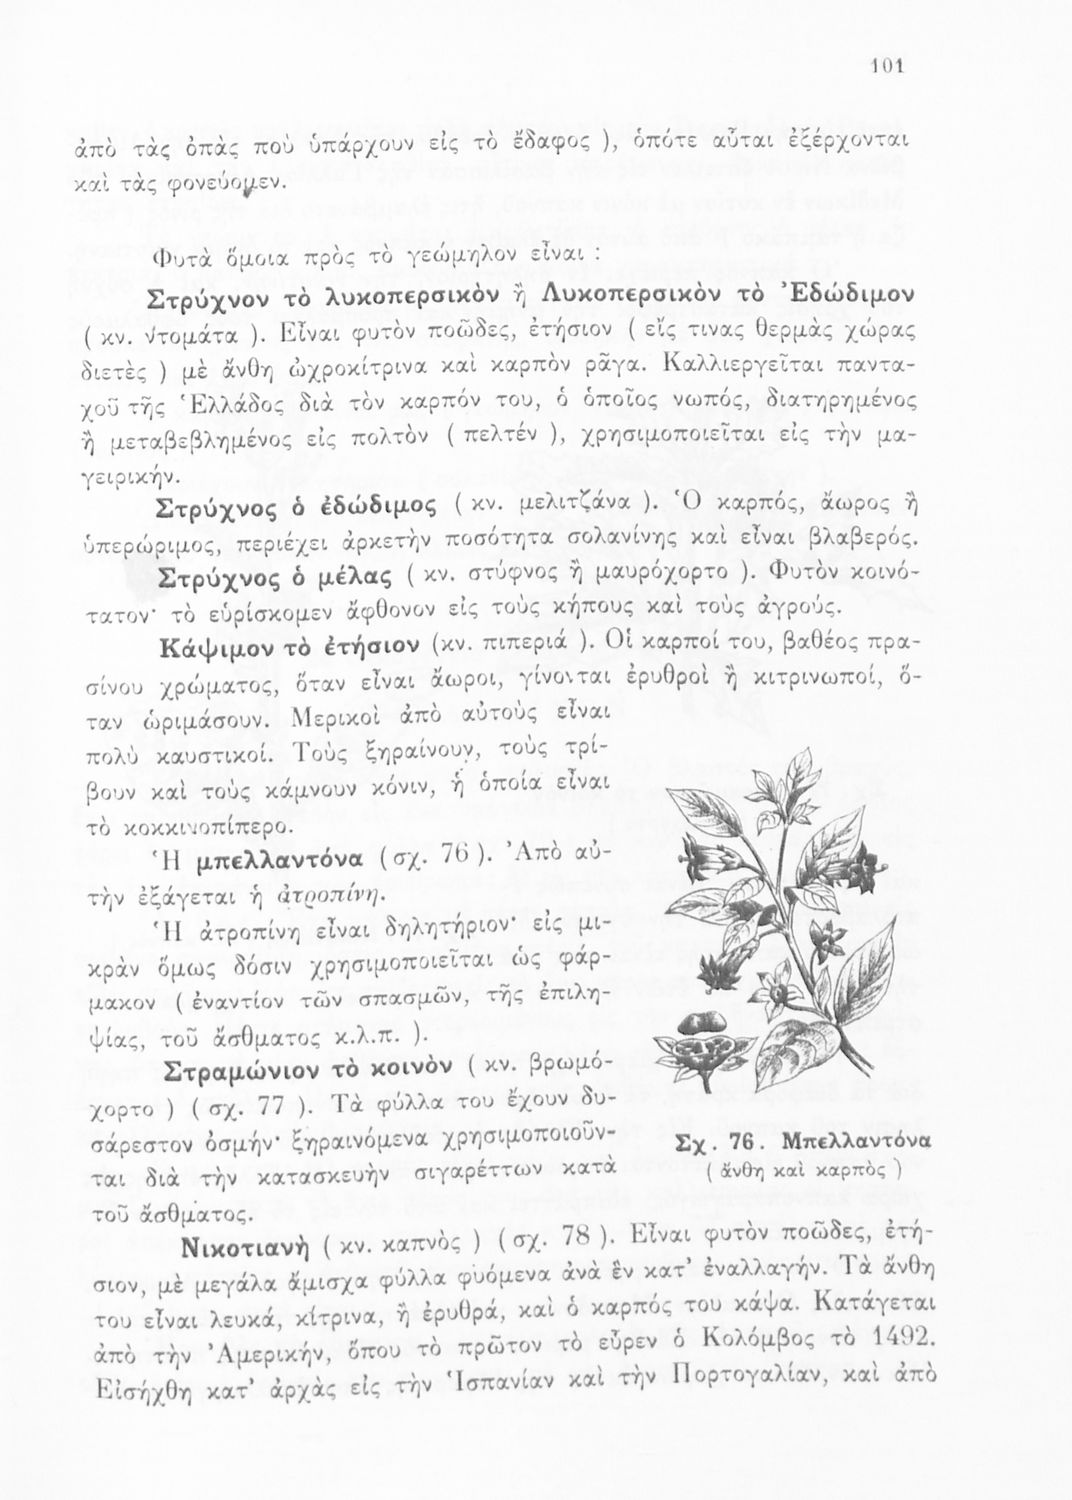 101
ἀπὸ τὰς ὀπὰς ποὺ ὑπάρχουν εἰς τὸ ἔδαφος ), ὁπότε αὗται ἐξέρχονται
καὶ τὰς φονεύομεν.
Φυτὰ ὅμοια πρὸς τὸ γεώμηλον εἶναι :
Στρύχνον τὸ λυκοπερσικὸν ἢ Λυκοπερσικὸν τὸ Ἐδώδιμον
( κν. ντομάτα ). Εἶναι φυτὸν ποῶδες, ἐτήσιον ( εἴς τινας θερμὰς χώρας
διετὲς ) μὲ ἄνθη ὠχροκίτρινα καὶ καρπὸν ρᾶγα. Καλλιεργεῖται παντα-
χοῦ τῆς Ἑλλάδος διὰ τὸν καρπόν του, ὁ ὁποῖος νωπός, διατηρημένος
ἢ μεταβεβλημένος εἰς πολτὸν ( πελτέν ), χρησιμοποιεῖται εἰς τὴν μα-
γειρικήν.
Στρύχνος ὁ ἐδώδιμος ( κν. μελιτζάνα ). Ὁ καρπός, ἄωρος ἢ
ὑπερώριμος, περιέχει ἀρκετὴν ποσότητα σολανίνης καὶ εἶναι βλαβερός.
Στρύχνος ὁ μέλας ( κν. στύφνος ἢ μαυρόχορτο ). Φυτὸν κοινό-
τατον· τὸ εὑρίσκομεν ἄφθονον εἰς τοὺς κήπους καὶ τοὺς ἀγρούς.
Κάψιμον τὸ ἐτήσιον (κν. πιπεριά ). Οἱ καρποί του, βαθέος πρα-
σίνου χρώματος, ὅταν εἶναι ἄωροι, γίνονται ἐρυθροὶ ἢ κιτρινωποί, ὅ-
ταν ὡριμάσουν. Μερικοὶ ἀπὸ αὐτοὺς εἶναι
πολὺ καυστικοί. Τοὺς ξηραίνουν, τοὺς τρί-
βουν καὶ τοὺς κάμνουν κόνιν, ἡ ὁποία εἶναι
τὸ κοκκινοπίπερο.
Ἡ μπελλαντόνα (σχ. 76 ). Ἀπὸ αὐ-
τὴν ἐξάγεται ἡ ἀτροπίνη.
Ἡ ἀτροπίνη εἶναι δηλητήριον· εἰς μι-
κρὰν ὅμως δόσιν χρησιμοποιεῖται ὡς φάρ-
μακον ( ἐναντίον τῶν σπασμῶν, τῆς ἐπιλη-
ψίας, τοῦ ἄσθματος κ.λ.π. ).
Στραμώνιον τὸ κοινὸν ( κν. βρωμό-
χορτο ) ( σχ. 77 ). Τὰ φύλλα του ἔχουν δυ-
σάρεστον ὀσμήν· ξηραινόμενα χρησιμοποιοῦν-
ται διὰ τὴν κατασκευὴν σιγαρέττων κατὰ
τοῦ ἄσθματος.
Σχ. 76. Μπελλαντόνα
( ἄνθη καὶ καρπὸς )
Νικοτιανὴ ( κν. καπνὸς ) (σχ. 78 ). Εἶναι φυτὸν ποῶδες, ἐτή-
σιον, μὲ μεγάλα ἄμισχα φύλλα φυόμενα ἀνὰ ἓν κατ’ ἐναλλαγήν. Τὰ ἄνθη
του εἶναι λευκά, κίτρινα, ἢ ἐρυθρά, καὶ ὁ καρπός του κάψα. Κατάγεται
ἀπὸ τὴν Ἀμερικήν, ὅπου τὸ πρῶτον τὸ εὗρεν ὁ Κολόμβος τὸ 1492.
Εἰσήχθη κατ’ ἀρχὰς εἰς τὴν Ἱσπανίαν καὶ τὴν Πορτογαλίαν, καὶ ἀπὸ